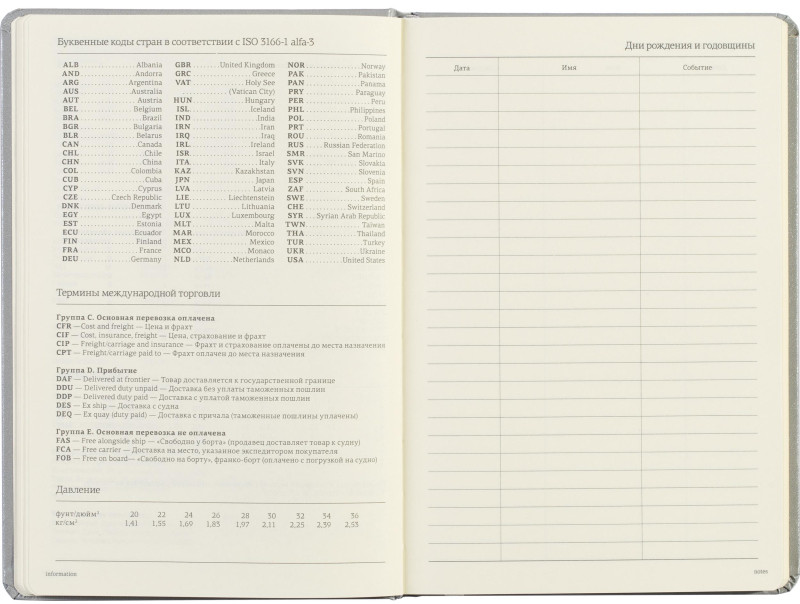 Буквенные коды стран в соответствии с ISO 3166-1 alfa-3
ALB Albania
AND Andorra
ARG Argentina
AUS Australia
AUT Austria
BEL Belgium
BRA Brazil
BGR Bulgaria
BLR Belarus
CAN Canada
CHL Chile
CHN China
COL Colombia
CUB Cuba
CYP Cyprus
CZE Czech Republic
DNK Denmark
EGY Egypt
EST Estonia
ECU Ecuador
FIN Finland
FRA France
DEU Germany
GBR United Kingdom
GRC Greece
VAT Holy See
(Vatican City)
HUN Hungary
ISL Iceland
IND India
IRN Iran
IRQ Iraq
IRL Ireland
ISR Israel
ITA Italy
KAZ Kazakhstan
JPN Japan
LVA Latvia
LIE Liechtenstein
LTU Lithuania
LUX Luxembourg
MLT Malta
MAR Morocco
MEX Mexico
MCO Monaco
NLD Netherlands
NOR Norway
PAK Pakistan
PAN Panama
PRY Paraguay
PER Peru
PHL Philippines
POL Poland
PRT Portugal
ROU Romania
RUS Russian Federation
SMR San Marino
SVK Slovakia
SVN Slovenia
ESP Spain
ZAF South Africa
SWE Sweden
CHE Switzerland
SYR Syrian Arab Republic
TWN Taiwan
THA Thailand
TUR Turkey
UKR Ukraine
USA United States
Термины международной торговли
Группа C. Основная перевозка оплачена
CFR — Cost and freight — Цена и фрахт
CIF — Cost, insurance, freight — Цена, страхование и фрахт
CIP — Freight/carriage and insurance — Фрахт и страхование оплачены до места назначения
CPT — Freight/carriage paid to — Фрахт оплачен до места назначения
Группа D. Прибытие
DAF — Delivered at frontier — Товар доставляется к государственной границе
DDU — Delivered duty unpaid — Доставка без уплаты таможенных пошлин
DDP — Delivered duty paid — Доставка с уплатой таможенных пошлин
DES — Ex ship — Доставка с судна
DEQ — Ex quay (duty paid) — Доставка с причала (таможенные пошлины уплачены)
Группа E. Основная перевозка не оплачена
FAS — Free alongside ship — «Свободно у борта» (продавец доставляет товар к судну)
FCA — Free carrier — Доставка на место, указанное экспедитором покупателя
FOB — Free on board— «Свободно на борту», франко-борт (оплачено с погрузкой на судно)
Давление
фунт/дюйм² 20 22 24 26 28 30 32 34 36
кг/см² 1,41 1,55 1,69 1,83 1,97 2,11 2,25 2,39 2,53
information
Дни рождения и годовщины
Дата Имя Событие
notes